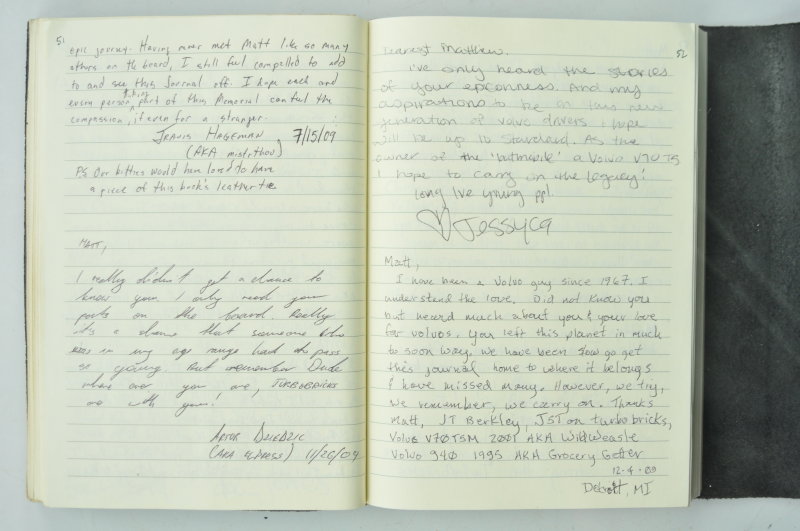 51
epic journey. Having never met Matt like so many
others on the board, I still feel compelled to add
to and see this Journal off. I hope each and
every person taking part of this Memorial can feel the
compassion, if even for a stranger.
Travis Hageman 7/15/09
(AKA mistrthou)
P.S. Our kitties would have loved to have
a piece of this book's leather tie
Matt,
I really didn't get a chance to
know you. I only read your
posts on the board. Really
it's a shame that someone who
was in my age range had to pass
so young. But remember Dude
where ever you are, TURBOBRICKS
are with you!
Artur Dziedzic
(AKA ) 11/26/09
52
Dearest Matthew.
I've only heard the stories
of your epicness. And my
aspirations to be on this new
generation of volvo drivers i hope
will be up to standard. As the
owner of the a Volvo V70 T5
I hope to carry on the legacy!
Long live young ppl.
♡ Jessyca
Matt,
I have been a Volvo guy since 1967. I
understand the love. Did not know you
but heard much about you & your love
for volvos. You left this planet in much
to soon way. We have been slow go get
this journal home to where it belongs
I have missed many. However, we try,
we remember, we carry on. Thanks
Matt, JT Berkley, JST on turbobricks,
Volvo V70T5M 2001 AKA WildWeasle
Volvo 940 1995 AKA Grocery Getter
12-4-09
Detroit, MI